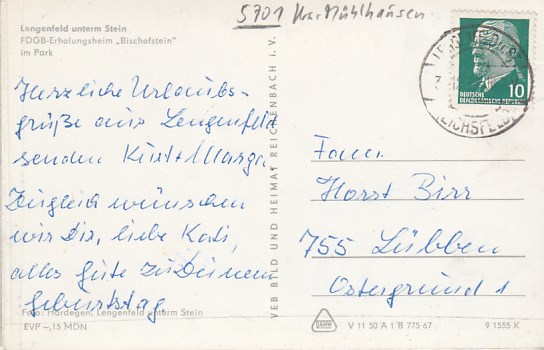 5701 Kr. Mühlhausen
Lengenfeld unterm Stein
FDGB-Erholungsheim „Bischofstein"
im Park
10
DEUTSCHE
DEMOKRATISCHE REPUBLIK
(EICHSFELD)
Herzliche Urlaubs-
grüße aus Lengenfeld
senden Kurt + Marga
Zugleich wünschen
wir Dir, liebe Kati,
alles Gute zu Deinem
Geburtstag
VEB BILD UND HEIMAT REICHENBACH I. V.
Fam.
Horst Birr
755 Lübben
Ostergrund 1
Foto: Hardegen, Lengenfeld unterm Stein
EVP -,15 MDN
V 11 50 A 1 B 775 67
9 1555 K